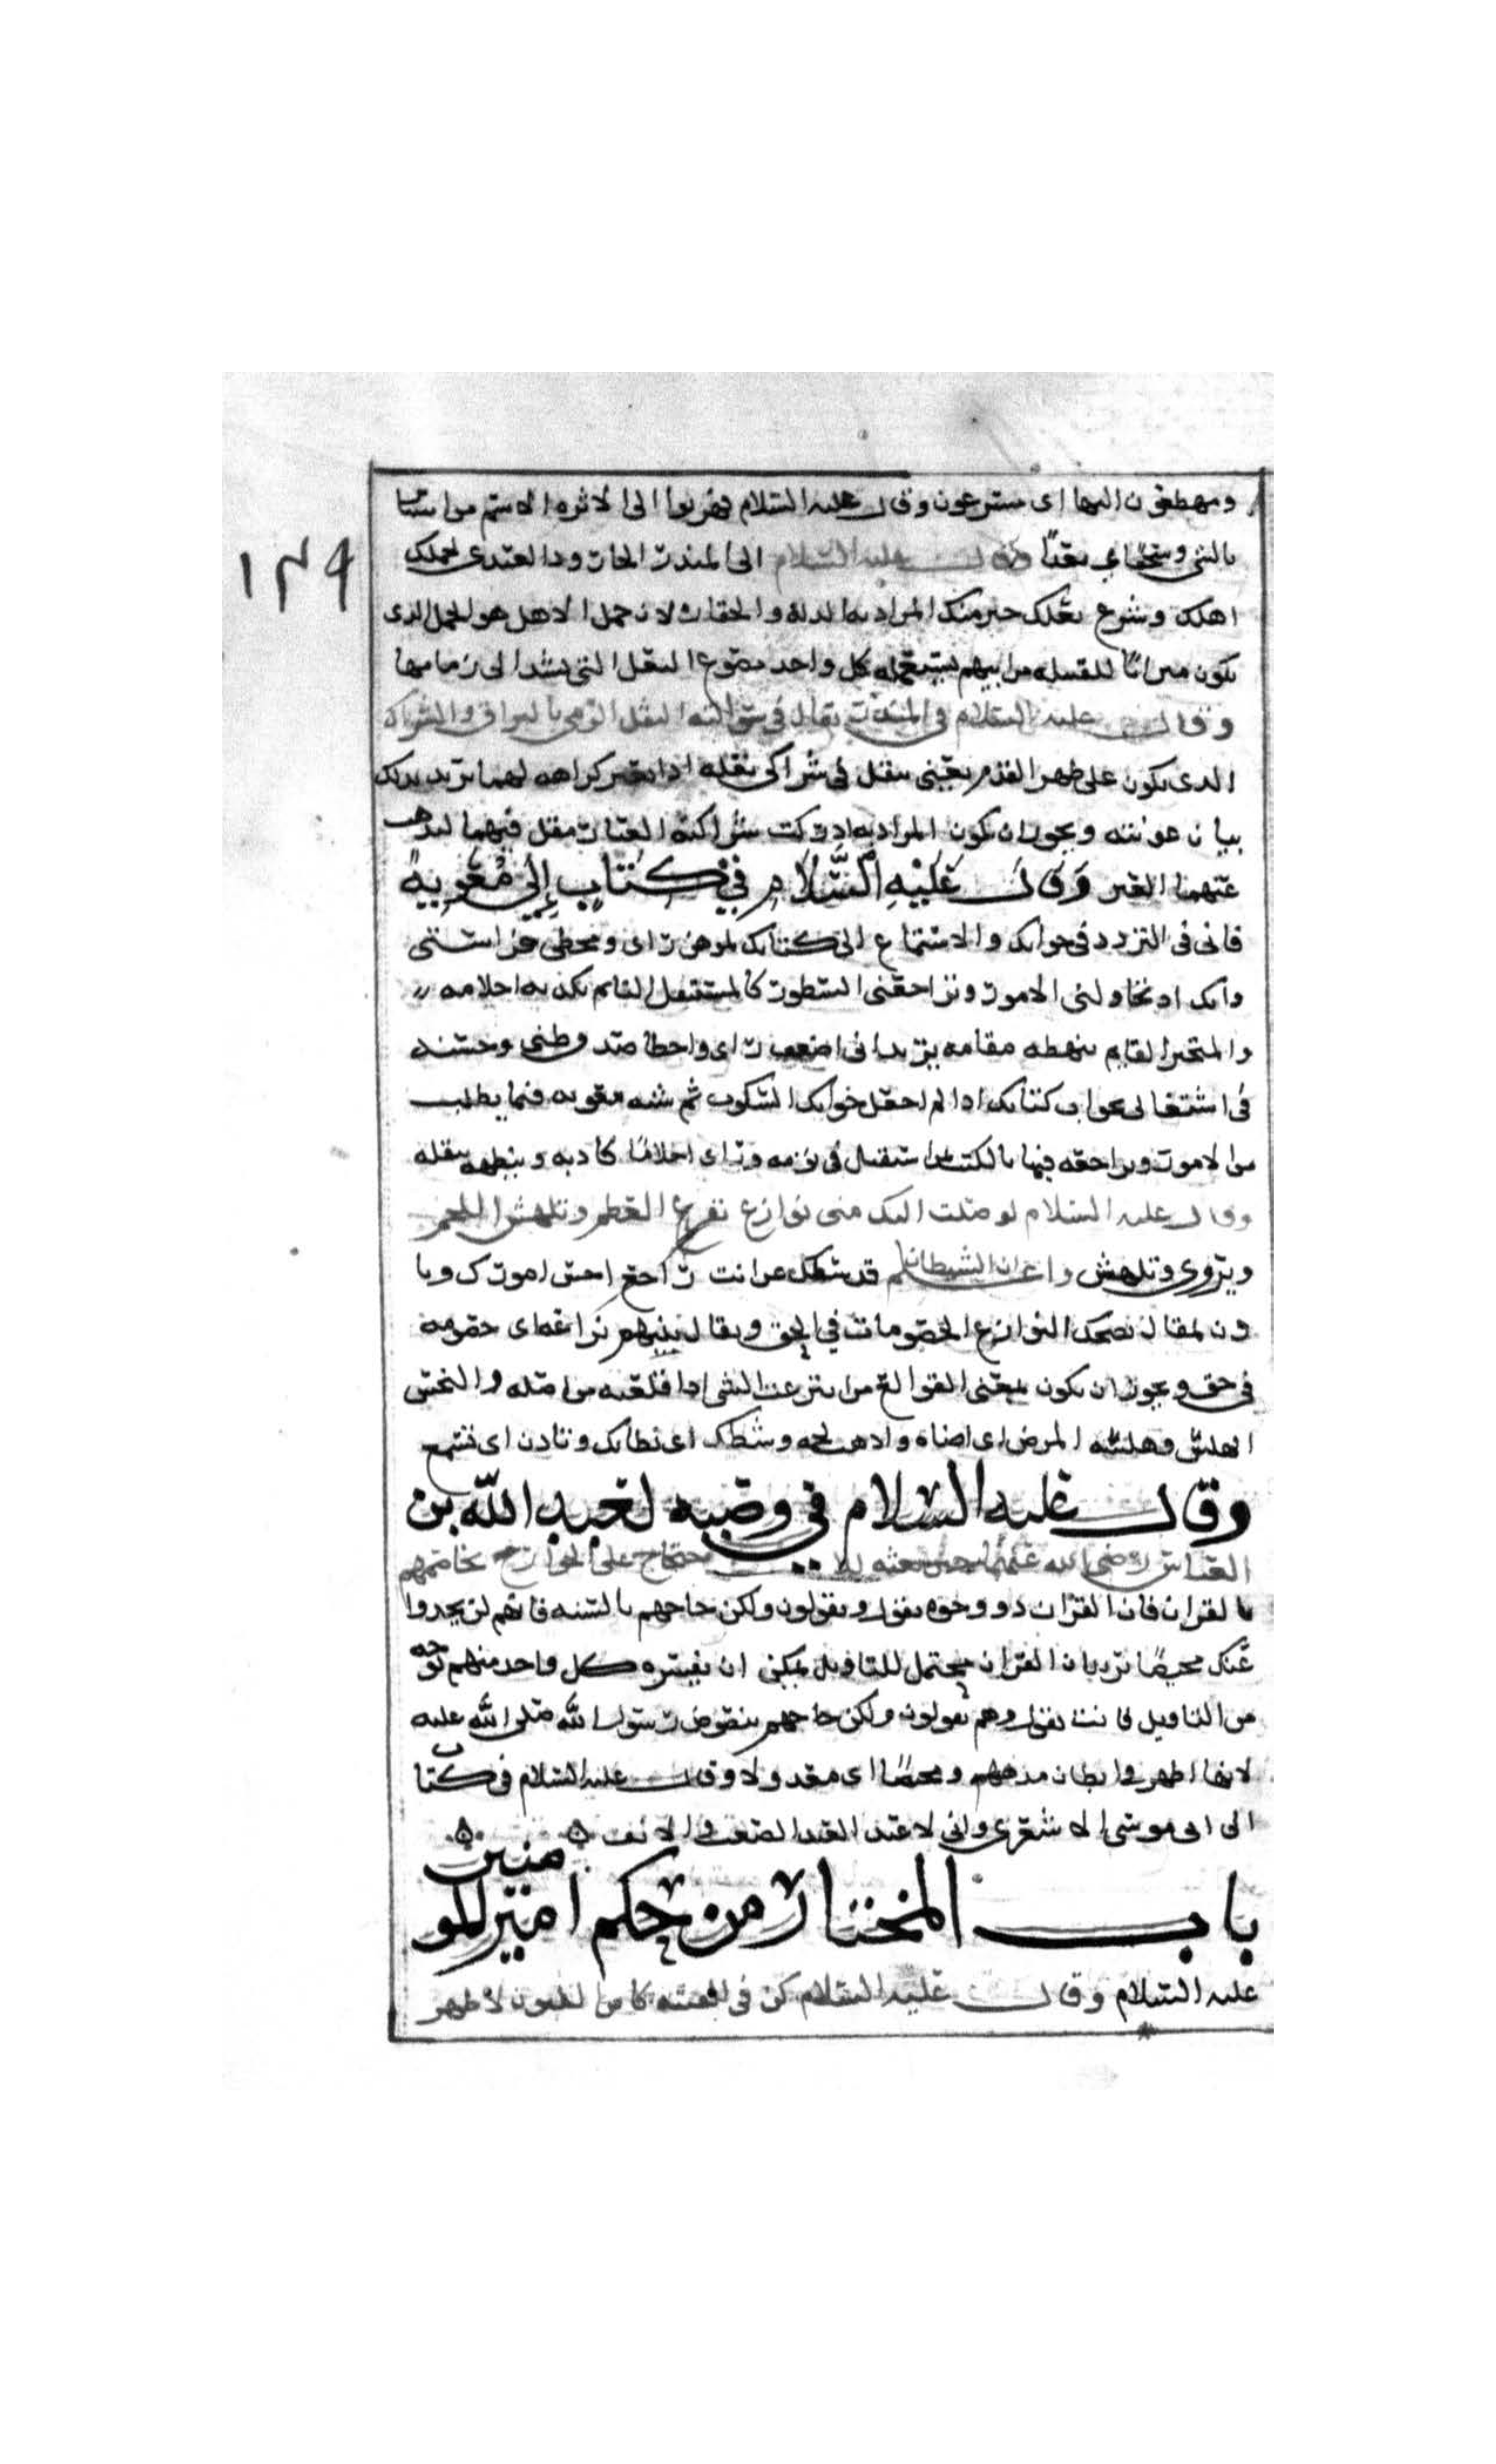 ومهطعون اليها اى مسرعون وقال عليه السلام فهربوا الى الاثره الاسم من استا
بالشى وسحقا اي بعدا وقال عليه السلام الى المنذر بن الجارود العبدى لجمل
اهلك وشسع نعلك خير منك المراد به الذله والحقاره لان جمل الاهل هو الجمل الذى
يكون ميراثا للقبيله من ابيهم يستعمله كل واحد وشسع النعل التى تشد الى زمامها
وقال عليه السلام فى المنذر
الذى يكون على ظهر القدم يعنى يتفل فى شراكى نعله اذا تغبر كراهه لهما يريد بذلك
بيان ويجوز ان يكون المراد به شراكيه الغبار فتفل فيهما ليذهب
عنهما الغبر وقال عليه السلام في كتاب إلى معوية
فانى فى التردد فى جوابك والاستماع الى كتابك لموهن راى ومخطى فراستى
وانك اذ تحاولنى الامور وتراجعنى السطور كالمستثقل النائم تكذبه احلامه
والمتحير القايم يبهظه مقامه يريد انى اضعف راى واخطا صدق ظنى وحسنه
فى اشتغالى بجواب كتابك اذا لم اجعل جوابك السكوت ثم شبه معويه فيما يطلب
من الامور ويراجعه فيها بالكتاب استثقل فى نومه وراى احلاما كاذبه ويبهظه يثقله
وقال عليه السلام لوصلت اليك منى نوازع تقرع العظم وتلهس اللحم
ويروى وتلهش واعلم ان الشيطان قد ثبطك عن انت تراجع احسن امورك ويا
ذن لمقال نصحك النوازع الخصومات في الحق ويقال بينهم نزاعه اى خصومه
فى حق ويجوز ان يكون بمعنى القوالع من نزعت الشى اذا قلعته من اصله والنهس
الهلس وهلسه المرض اى اضناه واذهب لحمه وثبطك اى بطابك وتاذن اى تسمع
وقال عليه السلام في وصيه لعبد الله بن
العباس رضى الله عنهما حين بعثه للاحتجاج على الخوارج لا تخاصمهم
بالقران فان القران ذو وجوه يقول ويقولون ولكن حاجهم بالسنه فانهم لن يجدوا
عنك محيصا يريد بان القران محتمل للتاويل يمكن ان يفسره كل واحد منهم بوجه
من التاويل فانت تقول وهم يقولون ولكن حاجهم بنصوص رسول الله صلى الله عليه
لانها اظهر فى ابطال مذهبهم ومحيصا اى معدولا وقال عليه السلام فى كتاب
الى ابى موسى الاشعرى وانى لاعبد
باب المختار من حكم امير المو منين
عليه السلام وقال عليه السلام كن فى الفتنه كابن اللبون لا ظهر
١٢٩